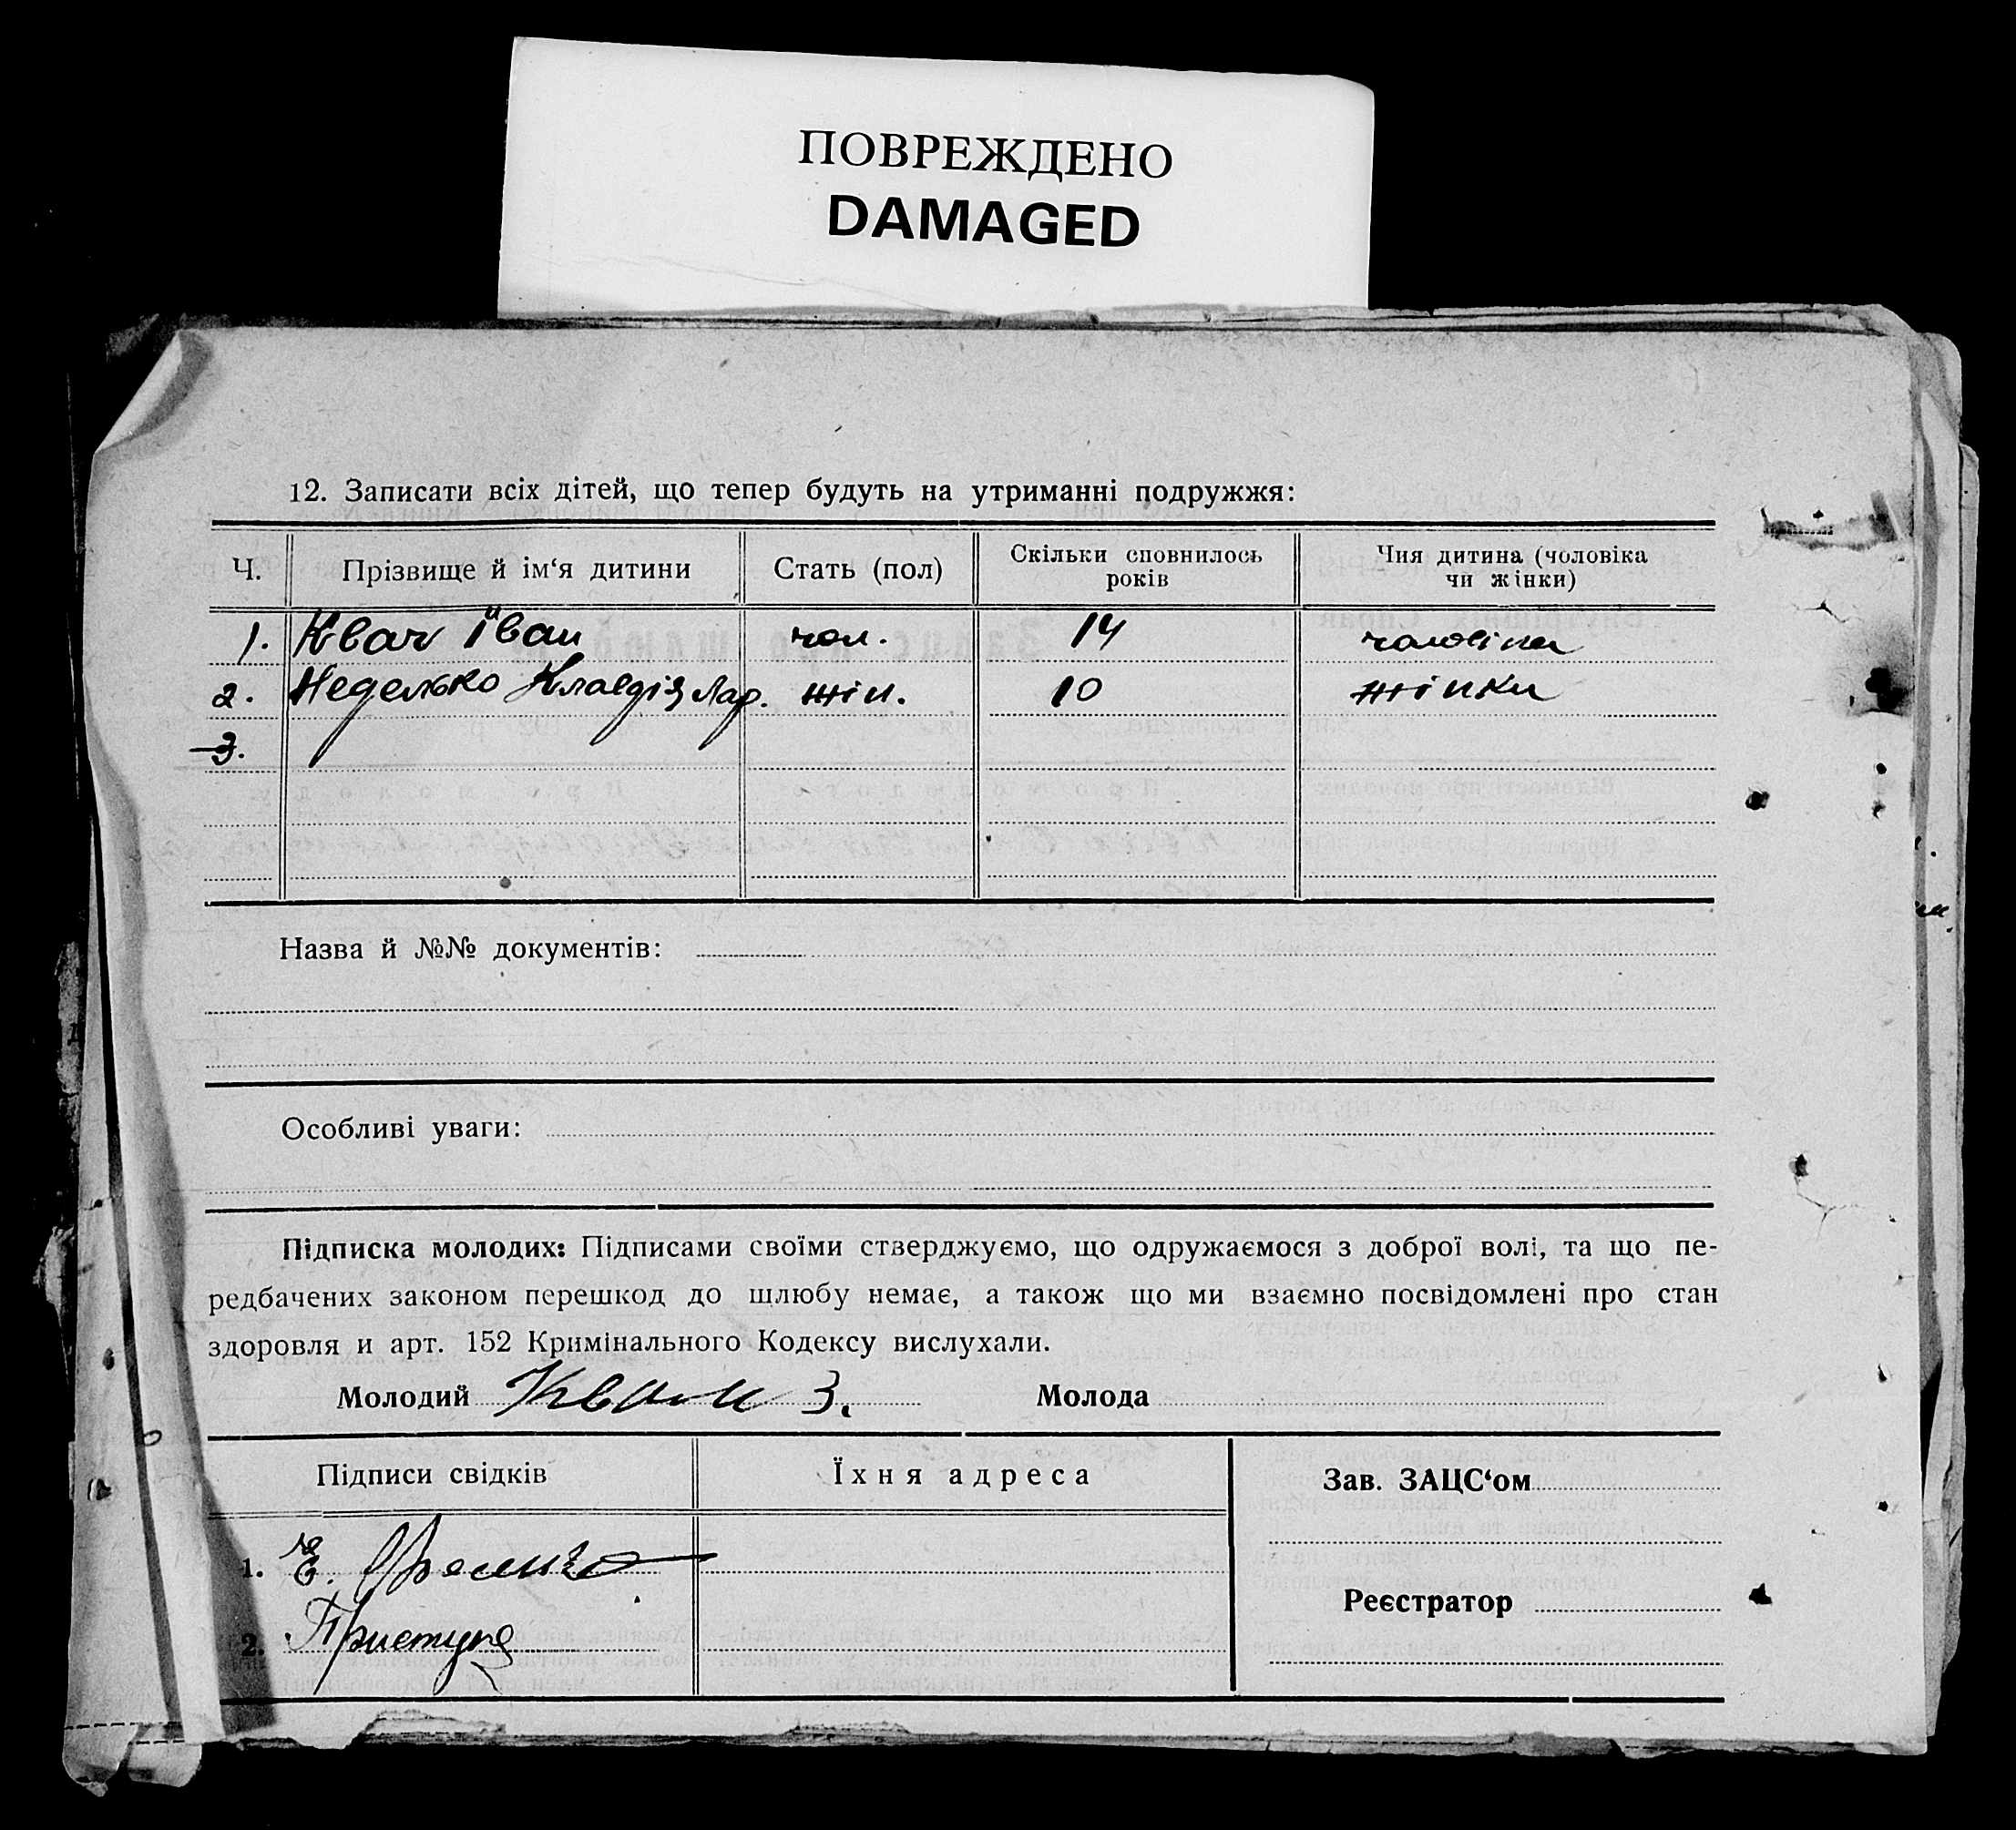 ПОВРЕЖДЕНО
DAMAGED
12. Записати всіх дітей, що тепер будуть на утриманні подружжя:
Ч. Прізвище й ім‘я дитини Стать (пол) Скільки сповнилось років Чия дитина (чоловіка чи жінки)
1. Квач Іван чол. 14 чоловіка
2. Неделько Клавдія Лар. жін. 10 жінки
3.
Назва й №№ документів:
Особливі уваги:
Підписка молодих: Підписами своїми стверджуємо, що одружаємося з доброї волі, та що пе-
редбачених законом перешкод до шлюбу немає, а також що ми взаємно посвідомлені про стан
здоровля и арт. 152 Кримінального Кодексу вислухали.
Молодий З. Молода
Підписи свідків Їхня адреса Зав. ЗАЦС‘ом
1. Е.
Реєстратор
2. Приступа